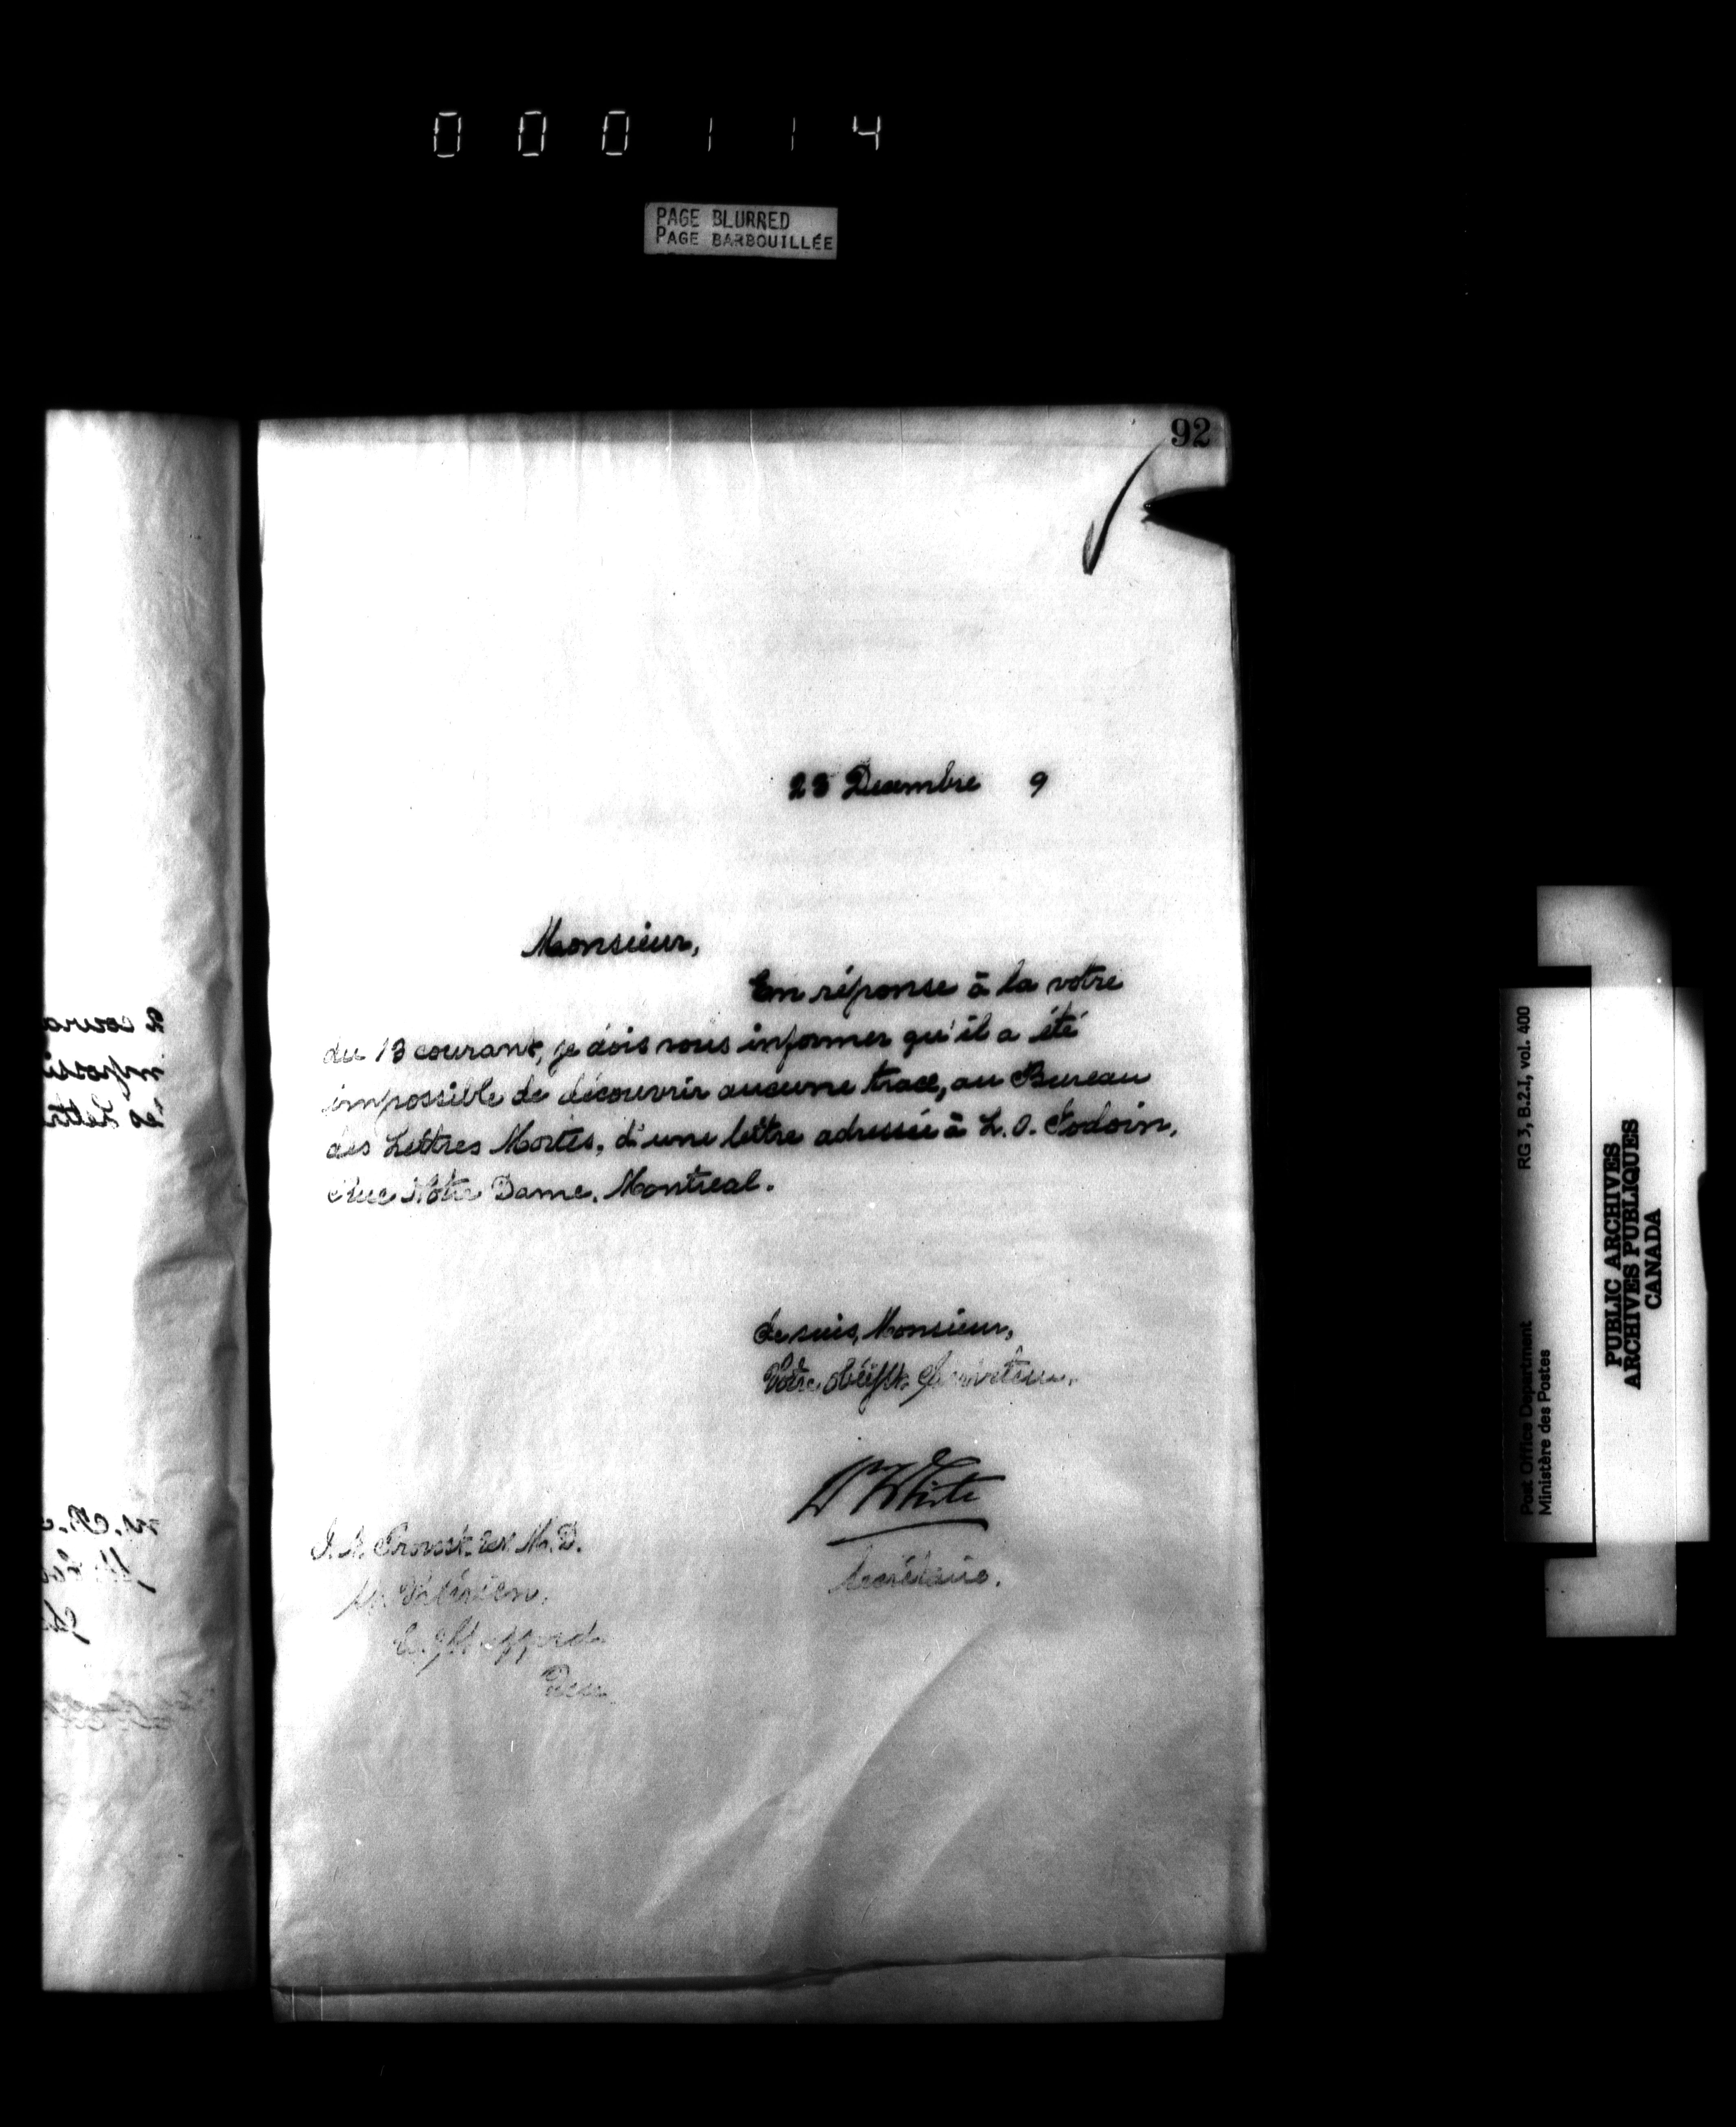 000114
PAGE BLURRED
PAGE BARBOUILLÉE
92
23 Decembre 9
Monsieur,
En réponse à la votre
du 13 courant, je dois vous informer qu'il a été
impossible de découvrir aucune trace, au Bureau
des Lettres Mortes, d'une lettre adressée à L. O. Jodoin,
Rue Notre Dame, Montreal.
Je suis, Monsieur,
Votre obéisst. Serviteur,
W White
Secrétaire.
M. D.
St. Valérien,
Co. Shefford
Que
RG 3, B.2.I, vol. 400
Post Office Department
Ministère des Postes
PUBLIC ARCHIVES
ARCHIVES PUBLIQUES
CANADA